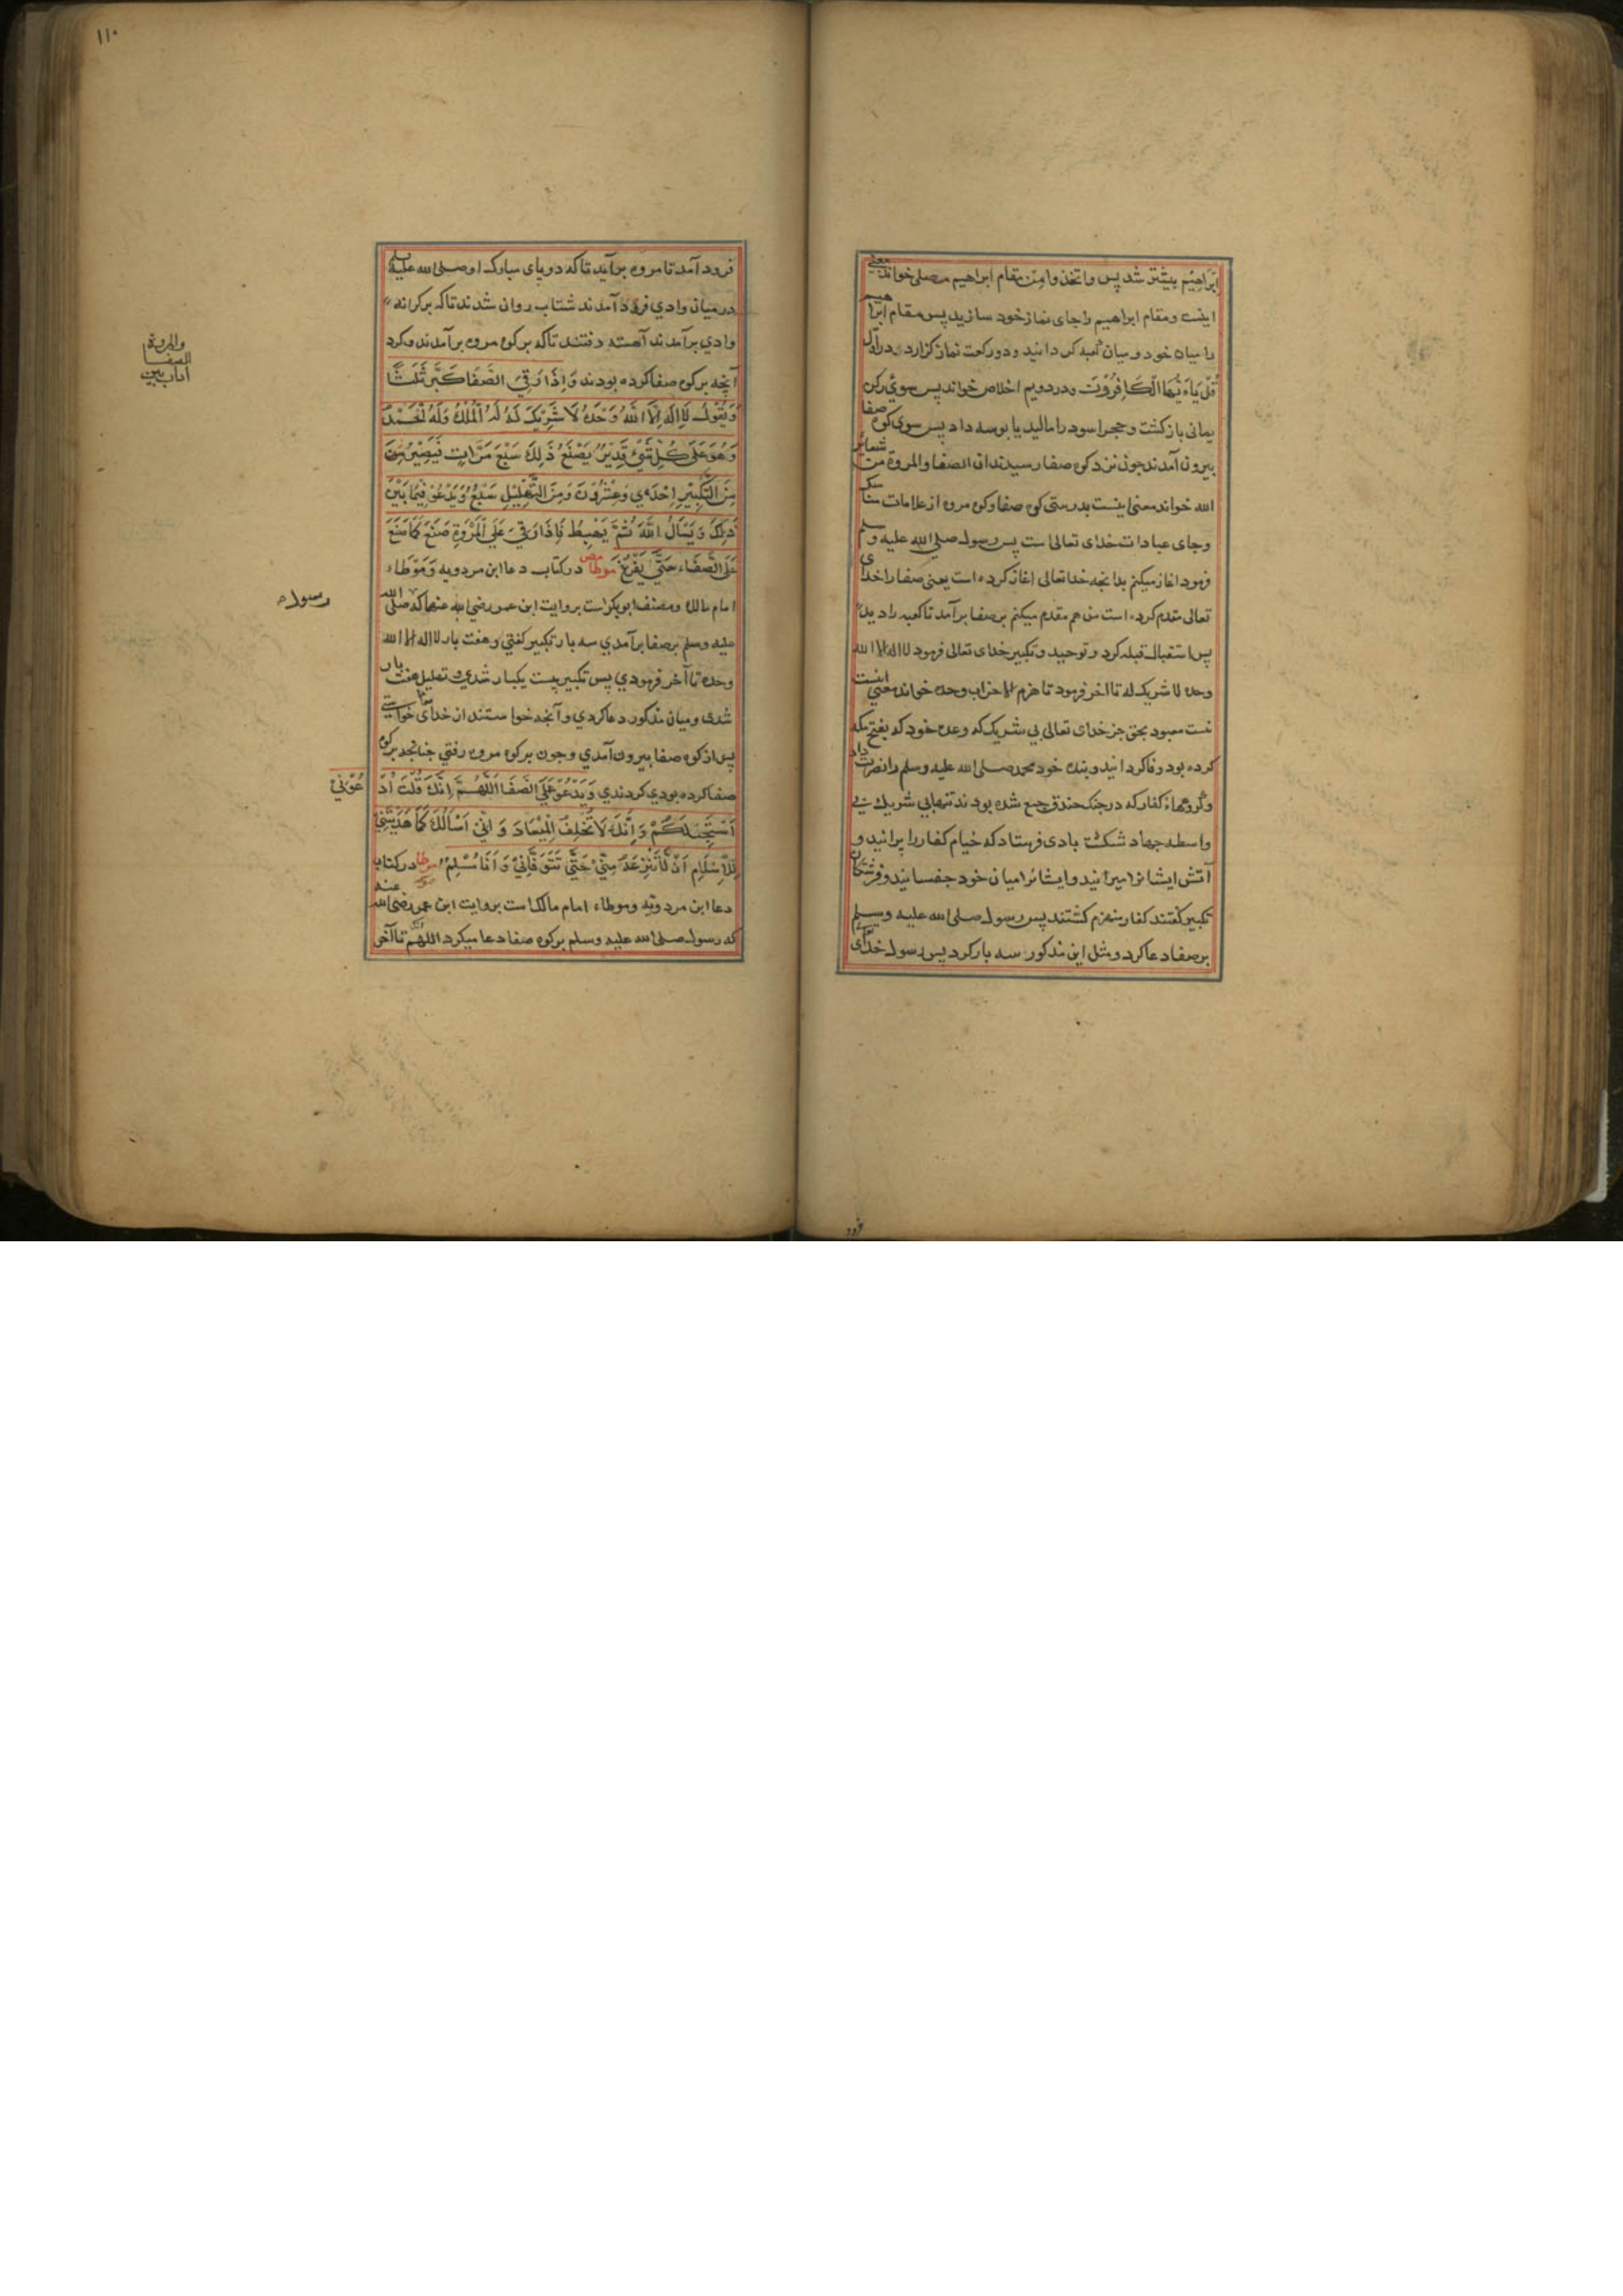 ابراهیم بیشتر شد پس واتخذوا من مقام ابراهیم مصلی خواند معنی
اینست و مقام ابراهیم را جای نماز خود سازید پس مقام ابراهیم
را میان خود و میان کعبه کردانید و دو رکعت نماز گزارد در اول
قُلْ یَا أَیُّهَا الْکَافِرُوْنَ ودر دویم اخلاص خواند پس سوی رکن
یمانی باز کشت و حجر اسود را مالید یا بوسه داد پس سوی کوه صفا
بیرون آمدند جون نزد کوه صفا رسیدند ان الصفا والمروة من شعائر
الله خواند معنی اینست بدرستی کوه صفا و کوه مروه از علامات مناسک
وجای عبادات خدای تعالی است پس رسول صلی الله علیه وسلم
فرمود اغاز میکنم بدانجه خدا تعالی اغاز کرده است یعنی صفا را خدای
تعالی مقدم کرده است من هم مقدم میکنم بر صفا برآمد تا کعبه را دید
پس استقبال قبله کرد و توحید و تکبیر خدای تعالی فرمود لا اله الا الله
وحده لا شریک له تا اخر فرمود تا هزم الاحزاب وحده خواند معنی اینست
نست معبود بحق جز خدای تعالی بی شریک که وعده خود که بفتح مکه
کرده بود وفا کردانید و بنده خود محمد صلی الله علیه وسلم را نصرت داد
وکروهاء کفار که در جنک خندق جمع شده بودند تنهایی شریک بی
واسطه جهاد شکست بادی فرستاد که خیام کفار را پرانید و
آتش ایشانرا میرانید و ایشانرا میان خود جفسانید و فرشتکان
تکبیر کفتند کفار منهزم کشتند پس رسول صلی الله علیه وسلم
بر صفا دعا کرد و مثل این مذکور سه بار کرد پس رسول خدای
فرود
١١٠
فرود آمد تا مروه برآید تا که دو پای مبارک او صلی الله علیه وسلم
در میان وادي فرود آمدند شتاب روان شدند تا که بر کرانه
وادي برآمدند آهسته رفتند تا که بر کوه مروه برآمدند و کرد
آنچه بر کوه صفا کرده بودند وَاِذَا رَقِيَ الصَّفَا كَبَّرَ ثَلٰثًا
وَيَقُوْلُ لَا اِلٰهَ اِلَّا اللهُ وَحْدَهُ لَا شَرِيْكَ لَهُ لَهُ الْمُلْكُ وَلَهُ الْحَمْدُ
وَهُوَ عَلَى كُلِّ شَيْءٍ قَدِيْرٌ يَصْنَعُ ذٰلِكَ سَبْعَ مَرَّاتٍ فَيَصِيْرُ مِنَ
مِنَ التَّكْبِيْرِ اِحْدٰى وَعِشْرُوْنَ وَمِنَ التَّهْلِيْلِ سَبْعٌ وَيَدْعُوْ فِيْمَا بَيْنَ
ذٰلِكَ وَيَسْاَلُ اللهَ ثُمَّ يَهْبِطُ فَاِذَا رَقِيَ عَلَى الْمَرْوَةِ صَنَعَ كَمَا صَنَعَ
عَلَى الصَّفَاءِ حَتّٰى يَفْرُغَ موطا مص در کتاب دعا ابن مردویه وموطاء
امام مالک ومصنف ابوبکر است بروایت ابن عمر رضي الله عنهما که صلی الله
علیه وسلم بر صفا برآمدي سه بار تکبیر کفتي وهفت بار لا اله الا الله
وحده تا آخر فرمودي پس تکبیر بیست یکبار شدي و تهلیل هفت بار
شدی و میان مذکور دعا کردي و آنجه خواستند از خدای خواستی
پس از کوه صفا بیرون آمدي و جون بر کوه مروه رفتي جنانجه بر کوه
صفا کرده بودي کردندي وَيَدْعُوْ عَلَى الصَّفَا اَللّٰهُمَّ اِنَّكَ قُلْتَ اُدْعُوْنِيْ
اَسْتَجِبْ لَكُمْ وَاِنَّكَ لَا تُخْلِفُ الْمِيْعَادَ وَاِنِّيْ اَسْاَلُكَ كَمَا هَدَيْتَنِيْ
لِلْاِسْلَامِ اَنْ لَا تَنْزِعَهُ مِنِّيْ حَتّٰى تَتَوَفَّانِيْ وَاَنَا مُسْلِمٌ موطا در کتاب
دعا ابن مردویه وموطاء امام مالک است بروایت ابن عمر رضی الله عنه
که رسول صلی الله علیه وسلم بر کوه صفا دعا میکرد اللهم تا آخر
آداب بین
الصفا
والمروة
رسول